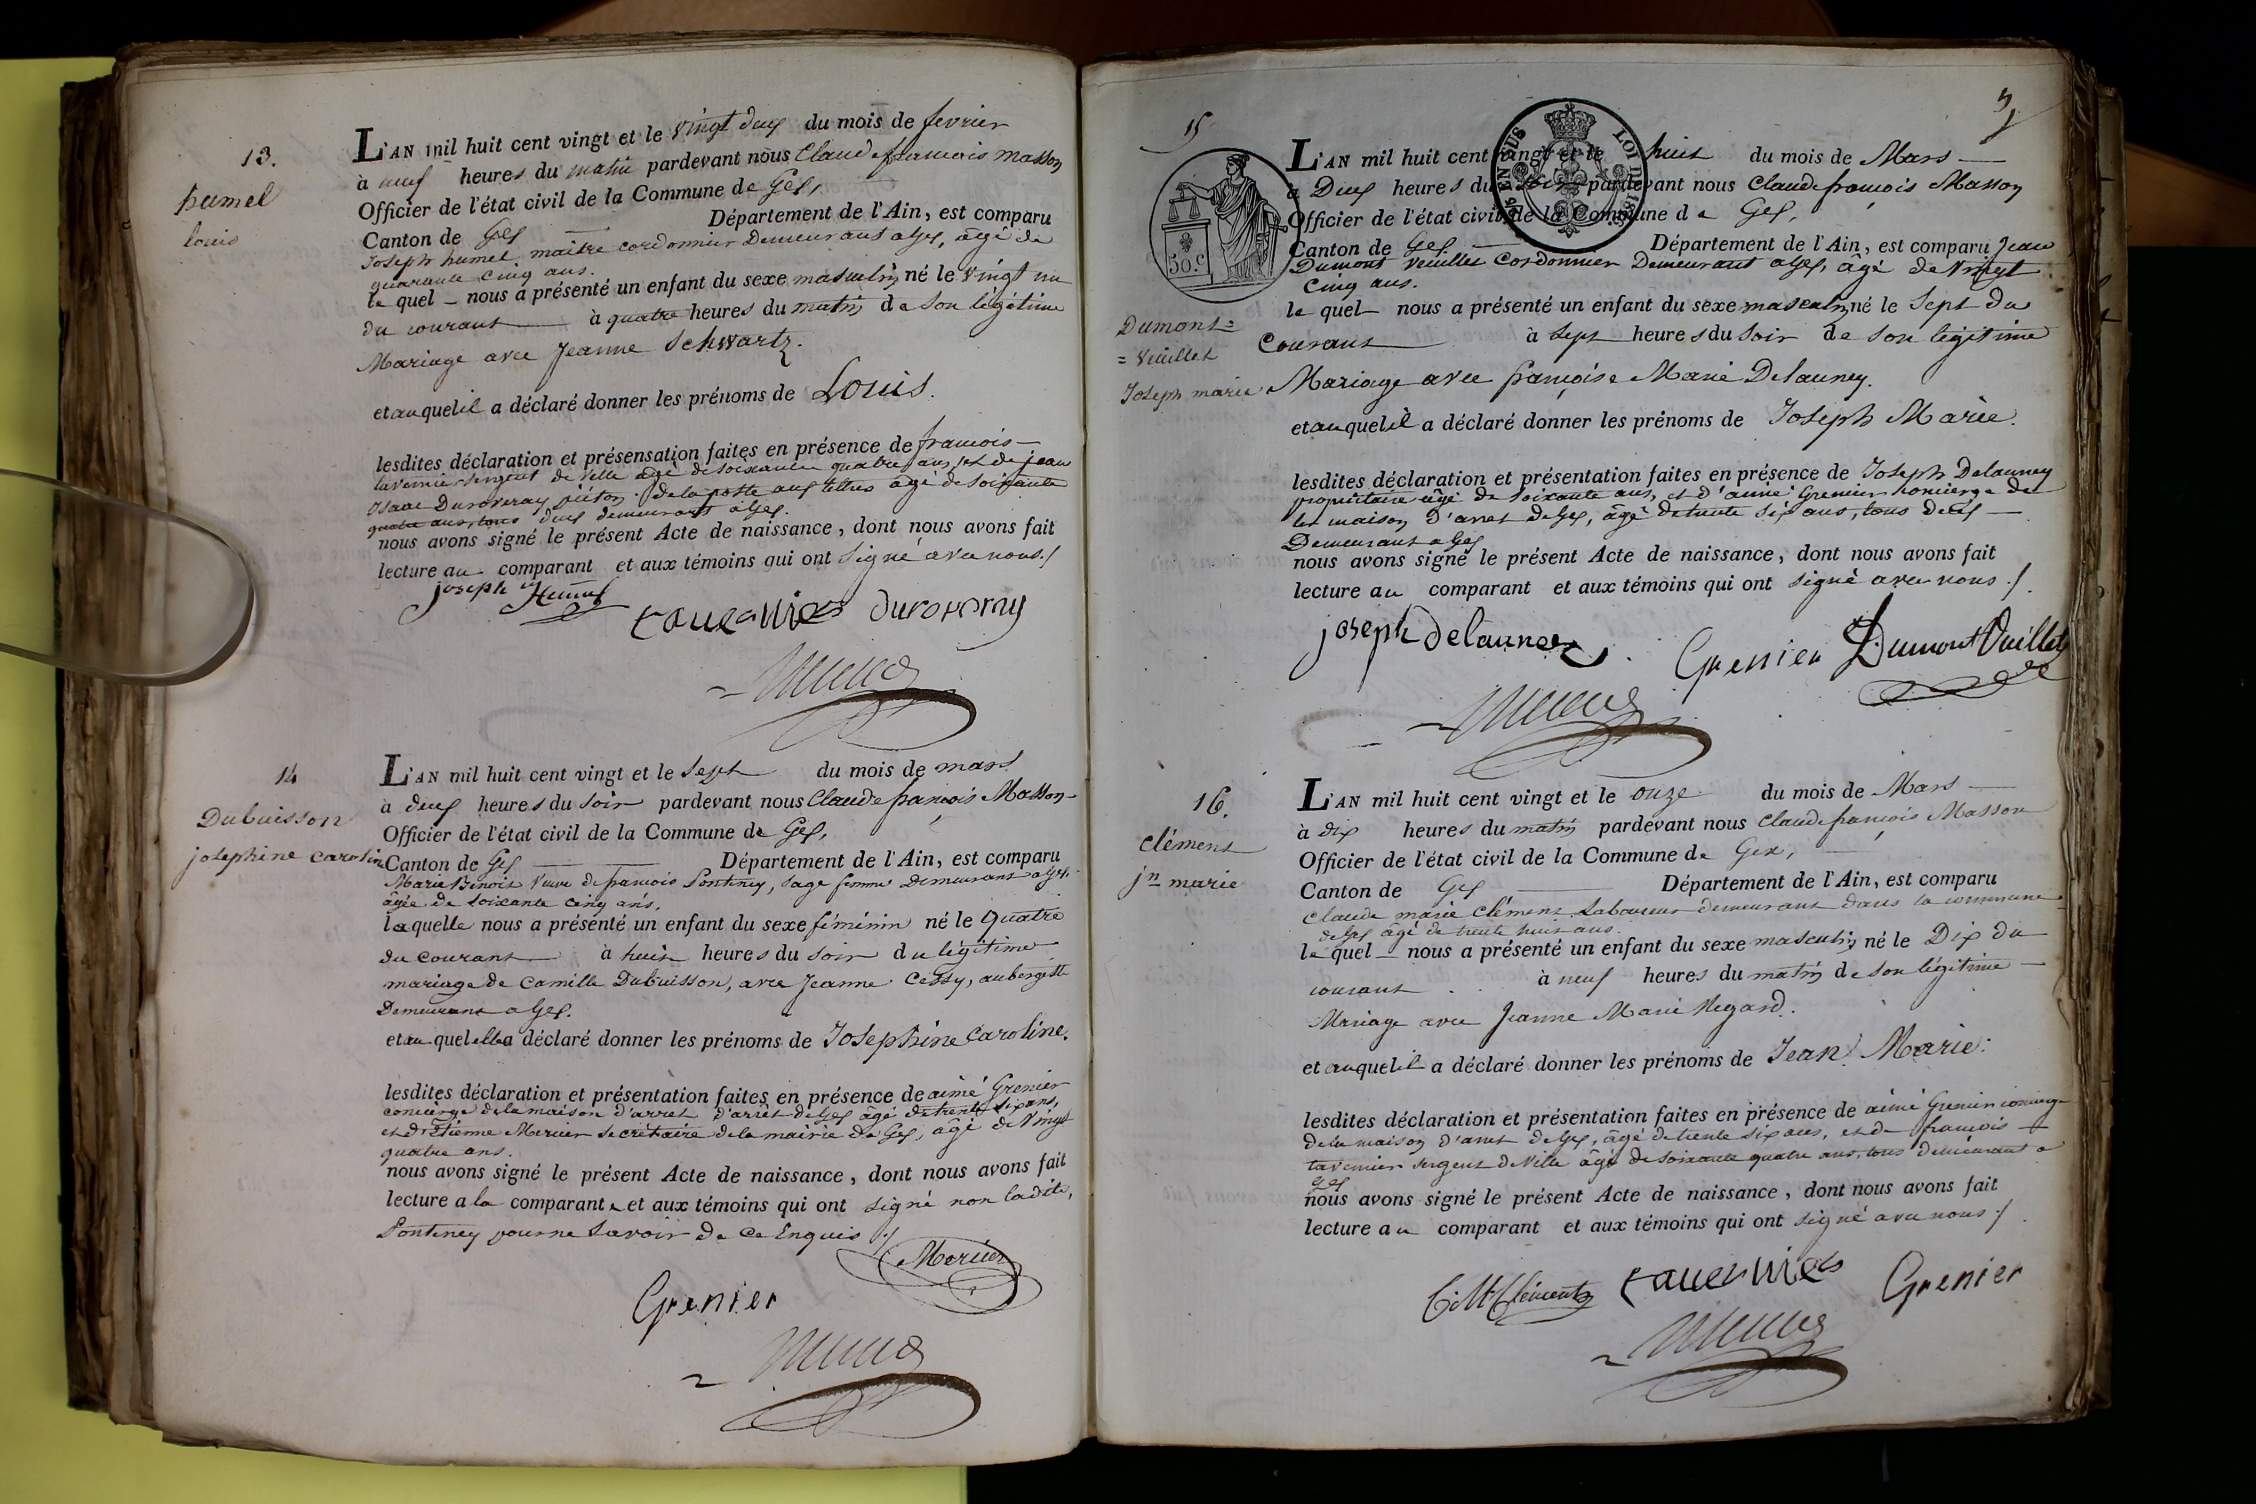 13.
humel
louis
L'AN mil huit cent vingt et le vingt deux du mois de fevrier
à neuf heures du matin pardevant nous Claude françois Masson
Officier de l'état civil de la Commune de Gex,
Canton de Gex Département de l'Ain, est comparu
Joseph humel maître cordonnier Demeurant a Gex, âgé de
quarante cinq ans.
le quel nous a présenté un enfant du sexe masculin né le vingt un
du courant à quatre heures du matin de son légitime
Mariage avec Jeanne Schwartz.
et auquel il a déclaré donner les prénoms de Louis.
lesdites déclaration et présensation faites en présence de françois
tavernier sergent de Ville âgé de soixante quatre ans, et de jean
isaac Duroveray piéton de la poste aux lettres âgé de soixante
quatre ans, tous deux demeurant a Gex.
nous avons signé le présent Acte de naissance, dont nous avons fait
lecture au comparant et aux témoins qui ont signé avec nous ./
joseph Humel
tavernier duroveray
14
Dubuisson
josephine caroline
L'AN mil huit cent vingt et le Sept du mois de mars
à deux heures du soir pardevant nous Claude françois Masson
Officier de l'état civil de la Commune de Gex,
Canton de Gex Département de l'Ain, est comparu
Marie Benoit Veuve de françois Pontiney, sage femme Demeurant a Gex,
âgée de soixante cinq ans.
laquelle nous a présenté un enfant du sexe féminin né le quatre
du courant à huit heures du soir du légitime
mariage de Camille Dubuisson, avec Jeanne Cessy, aubergiste
Demeurant a Gex.
et au quel elle a déclaré donner les prénoms de Josephine Caroline.
lesdites déclaration et présentation faites en présence de aimé Grenier
concierge de la maison d'arret d'arrêt de Gex âgé de trente six ans,
et d'Etienne Mercier secrétaire de la mairie de Gex, âgé de Vingt
quatre ans.
nous avons signé le présent Acte de naissance, dont nous avons fait
lecture a la comparante et aux témoins qui ont signé non ladite,
Pontiney pour ne savoir de ce Enquis ./
Mercier
Grenier
15
5
50.c
EN SUS
LOI DE 18
Dumont =
= Vuillet
Joseph marie
L'AN mil huit cent vingt et le huit du mois de Mars
à Deux heures du soir pardevant nous Claude françois Masson
Officier de l'état civil de la Commune de Gex,
Canton de Gex Département de l'Ain, est comparu Jean
Dumont Veuillet Cordonnier Demeurant a Gex, âgé de Vingt
cinq ans.
le quel nous a présenté un enfant du sexe masculin né le Sept du
Courant à sept heures du soir de son légitime
Mariage avec françoise Marie Delauney.
et auquel il a déclaré donner les prénoms de Joseph Marie.
lesdites déclaration et présentation faites en présence de Joseph Delauney
propriétaire âgé de soixante ans, et d'aimé Grenier concierge de
la maison d'arret de Gex, âgé de trente six ans, tous deux
Demeurant a Gex
nous avons signé le présent Acte de naissance, dont nous avons fait
lecture au comparant et aux témoins qui ont signé avec nous ./
joseph delauney
Grenier Dumont Vuillet
16.
clément
jn marie
L'AN mil huit cent vingt et le onze du mois de Mars
à dix heures du matin pardevant nous Claude françois Masson
Officier de l'état civil de la Commune de Gex,
Canton de Gex Département de l'Ain, est comparu
Claude marie Clément Laboureur demeurant dans la commune
de Gex âgé de trente huit ans.
le quel nous a présenté un enfant du sexe masculin né le Dix du
courant à neuf heures du matin de son légitime
Mariage avec Jeanne Marie Regard.
et auquel il a déclaré donner les prénoms de Jean Marie.
lesdites déclaration et présentation faites en présence de aimé Grenier concierge
de la maison d'arret de Gex, âgé de trente six ans, et de françois
tavernier sergent de Ville âgé de soixante quatre ans, tous demeurant a
Gex
nous avons signé le présent Acte de naissance, dont nous avons fait
lecture au comparant et aux témoins qui ont signé avec nous ./
C. M. Clément tavernier Grenier